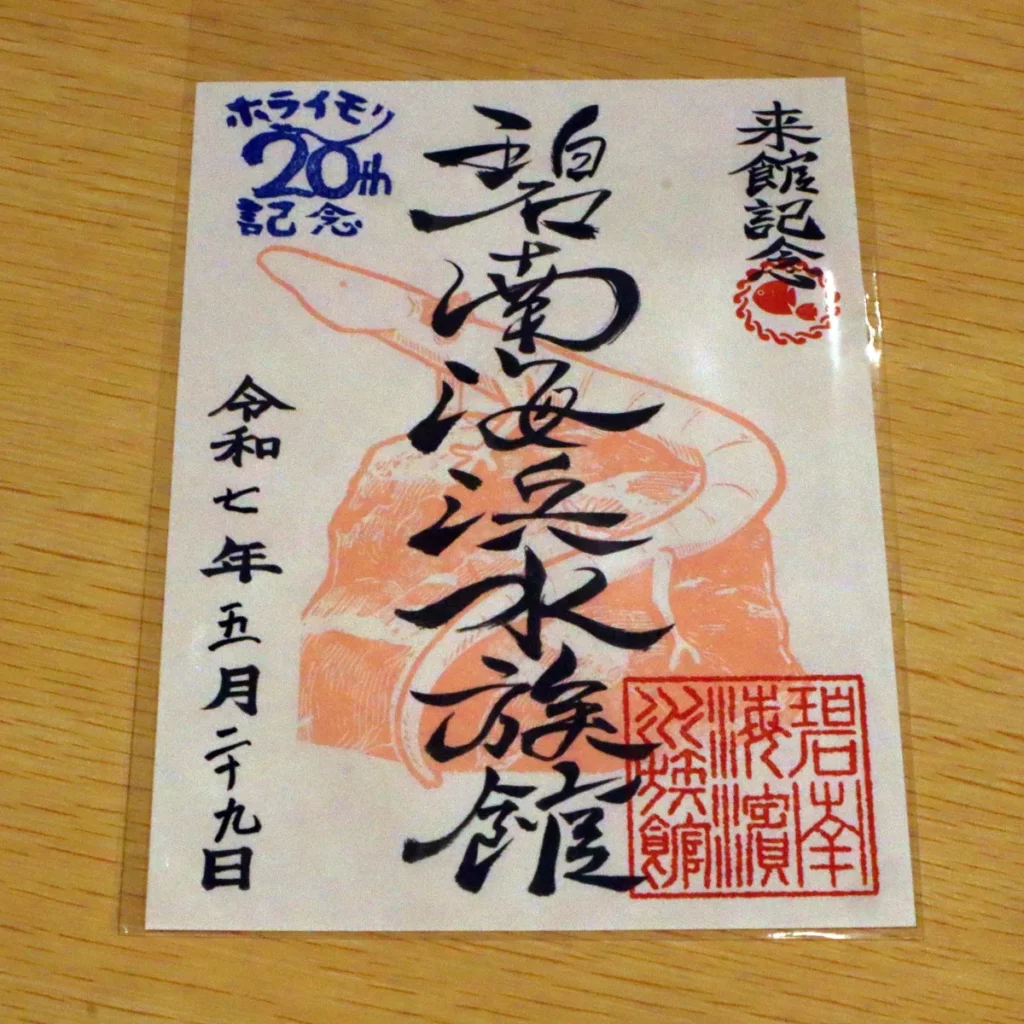 来館記念
碧南海浜水族館
ホライモリ
20th
記念
令和七年五月二十九日
碧南
海濱
水族館